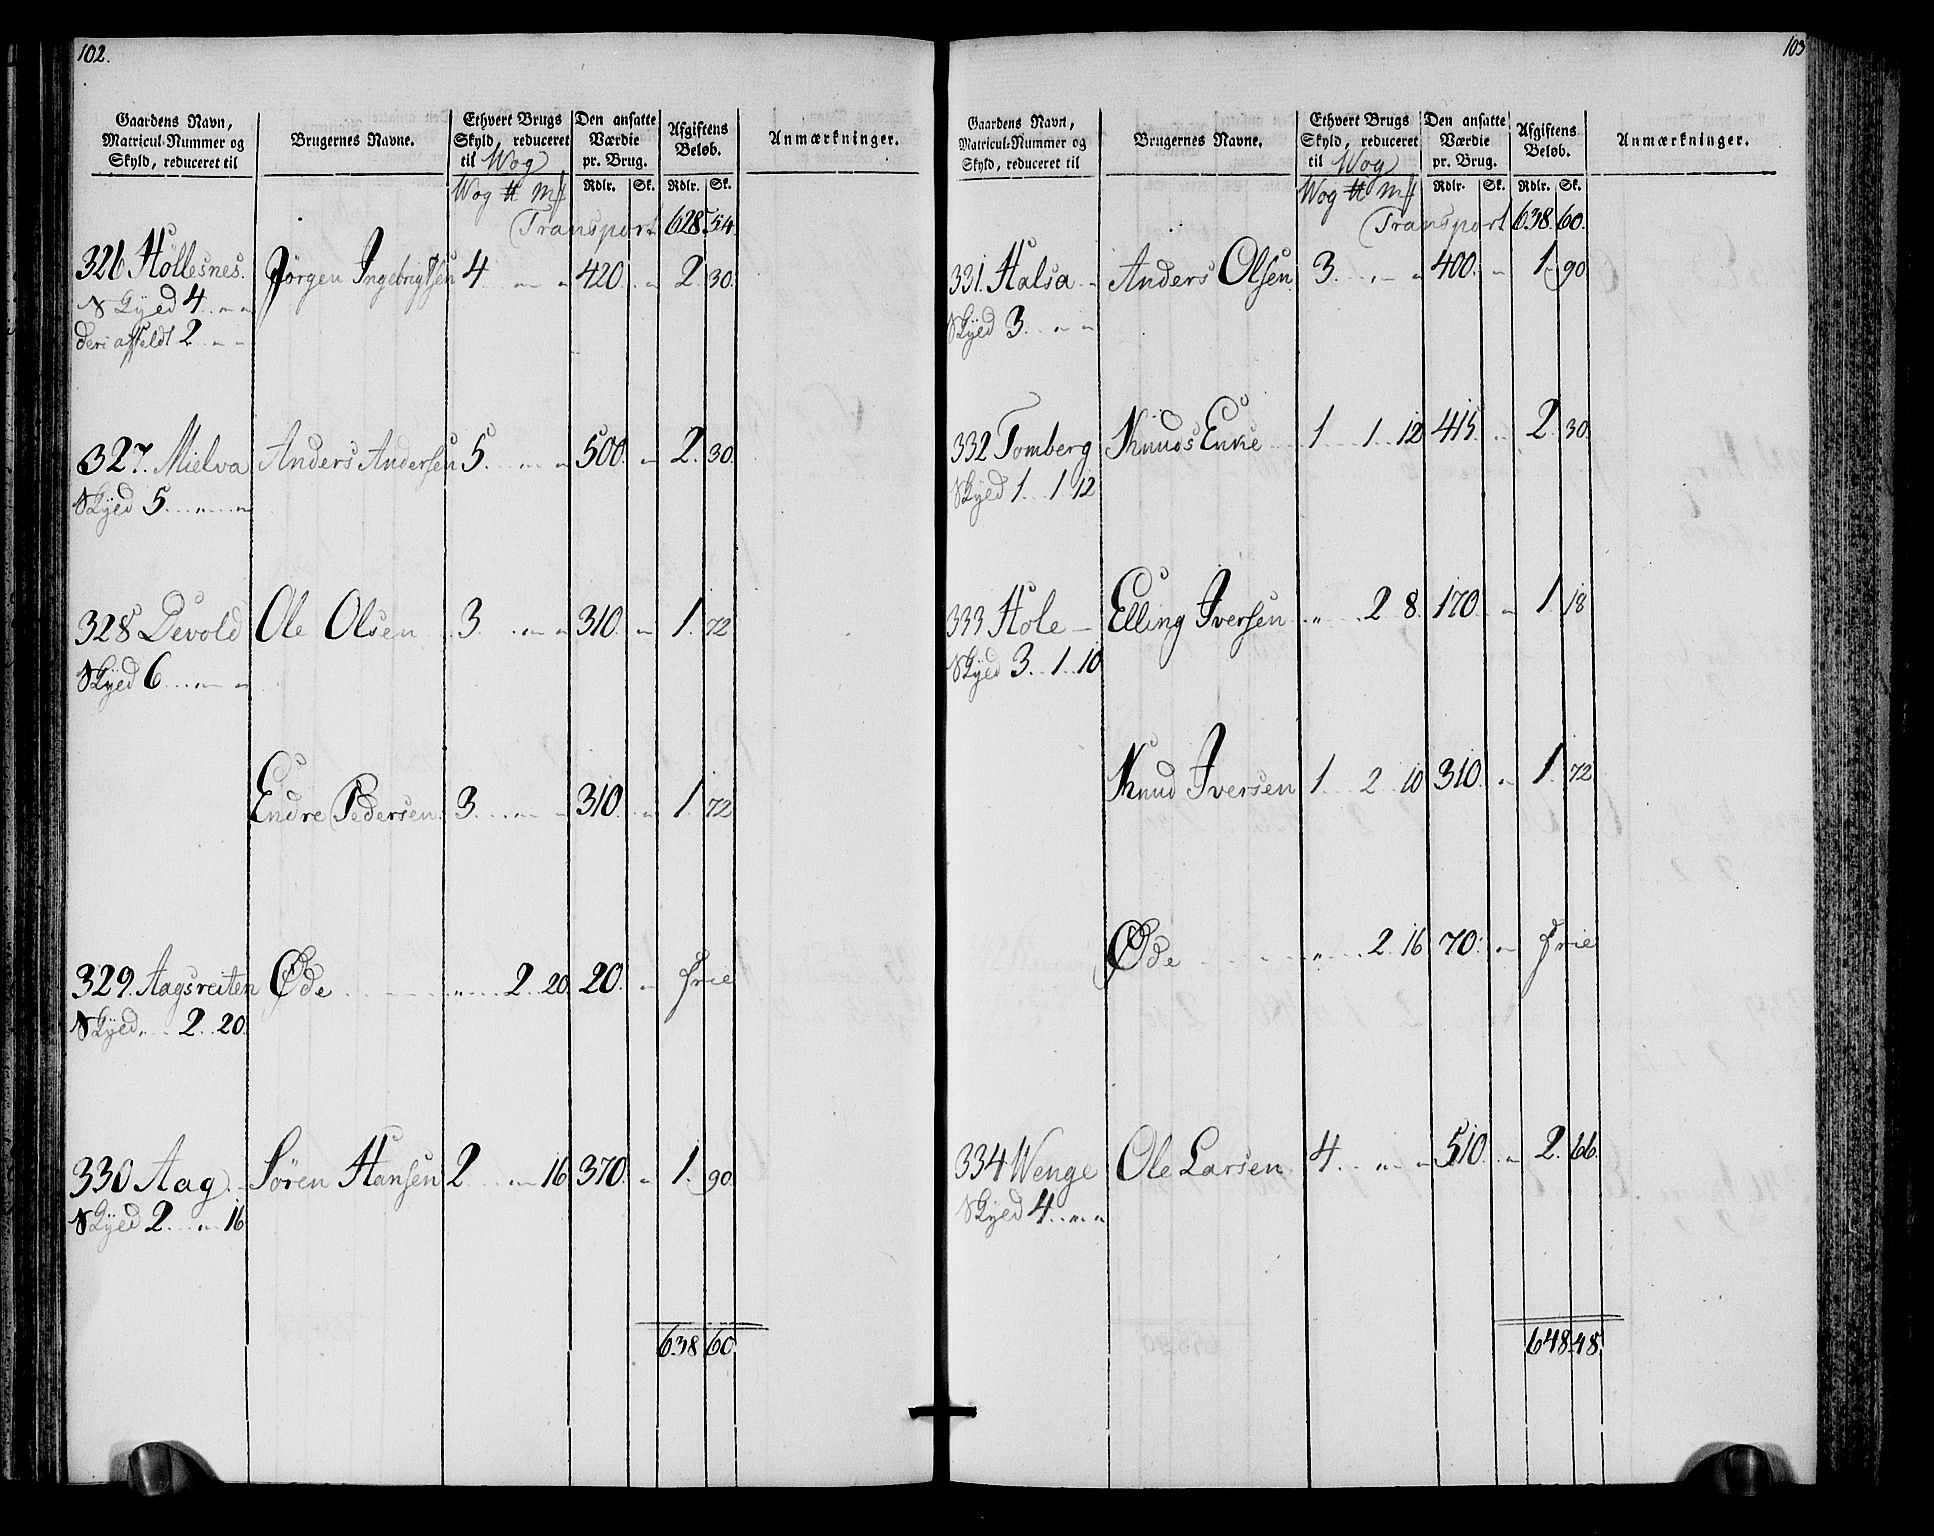 102.
Gaardens Navn, Matricul-Nummer og Skyld, reduceret til | Brugernes Navne. | Ethvert Brugs Skyld, reduceret til Wog | Den ansatte Værdie pr. Brug. | Afgiftens Beløb. | Anmærkninger.
Wog ℔ mk | Rdlr. | Sk. | Rdlr. | Sk.
Transport 628. 54.
326 Höllesnes. Jörgen Ingebrigtsen 4 „ „ 420. „ 2. 30.
Skyed 4 „ „
deri affeldt 2 „ „
327. Mielva Anders Andersen 5 „ „ 500. „ 2. 30.
Skyed 5 „ „
328 Devold Ole Olsen 3 „ „ 310. „ 1. 72
Skyed 6 „ „
Endre Pedersen 3 „ „ 310. „ 1. 72
329. Aagsreiten Øde „ 2 20. 20. „ frie
Skyed „ 2 20.
330 Aag Sören Hansen 2 „ 16 370. „ 1. 90.
Skyed 2 „ 16
638 60.
103
Gaardens Navn, Matricul-Nummer og Skyld, reduceret til | Brugernes Navne. | Ethvert Brugs Skyld, reduceret til Wog | Den ansatte Værdie pr. Brug. | Afgiftens Beløb. | Anmærkninger.
Wog ℔ mk | Rdlr. | Sk. | Rdlr. | Sk.
Transport 638. 60.
331. Halsa Anders Olsen 3. „ „ 400. „ 1. 90
Skyed 3. „ „
332 Tomberg Knuds Enke 1 1 12 415 „ 2. 30.
Skyed 1 1 12
333 Hole Elling Iversen „ 2 8. 170. „ 1 18
Skyed 3. 1 10
Knud Iversen 1 2 10 310. „ 1. 72
Øde „ 2 16 70. „ frie
334 Wenge Ole Larsen 4 „ „ 510. „ 2. 66.
Skyed 4 „ „
648. 48.